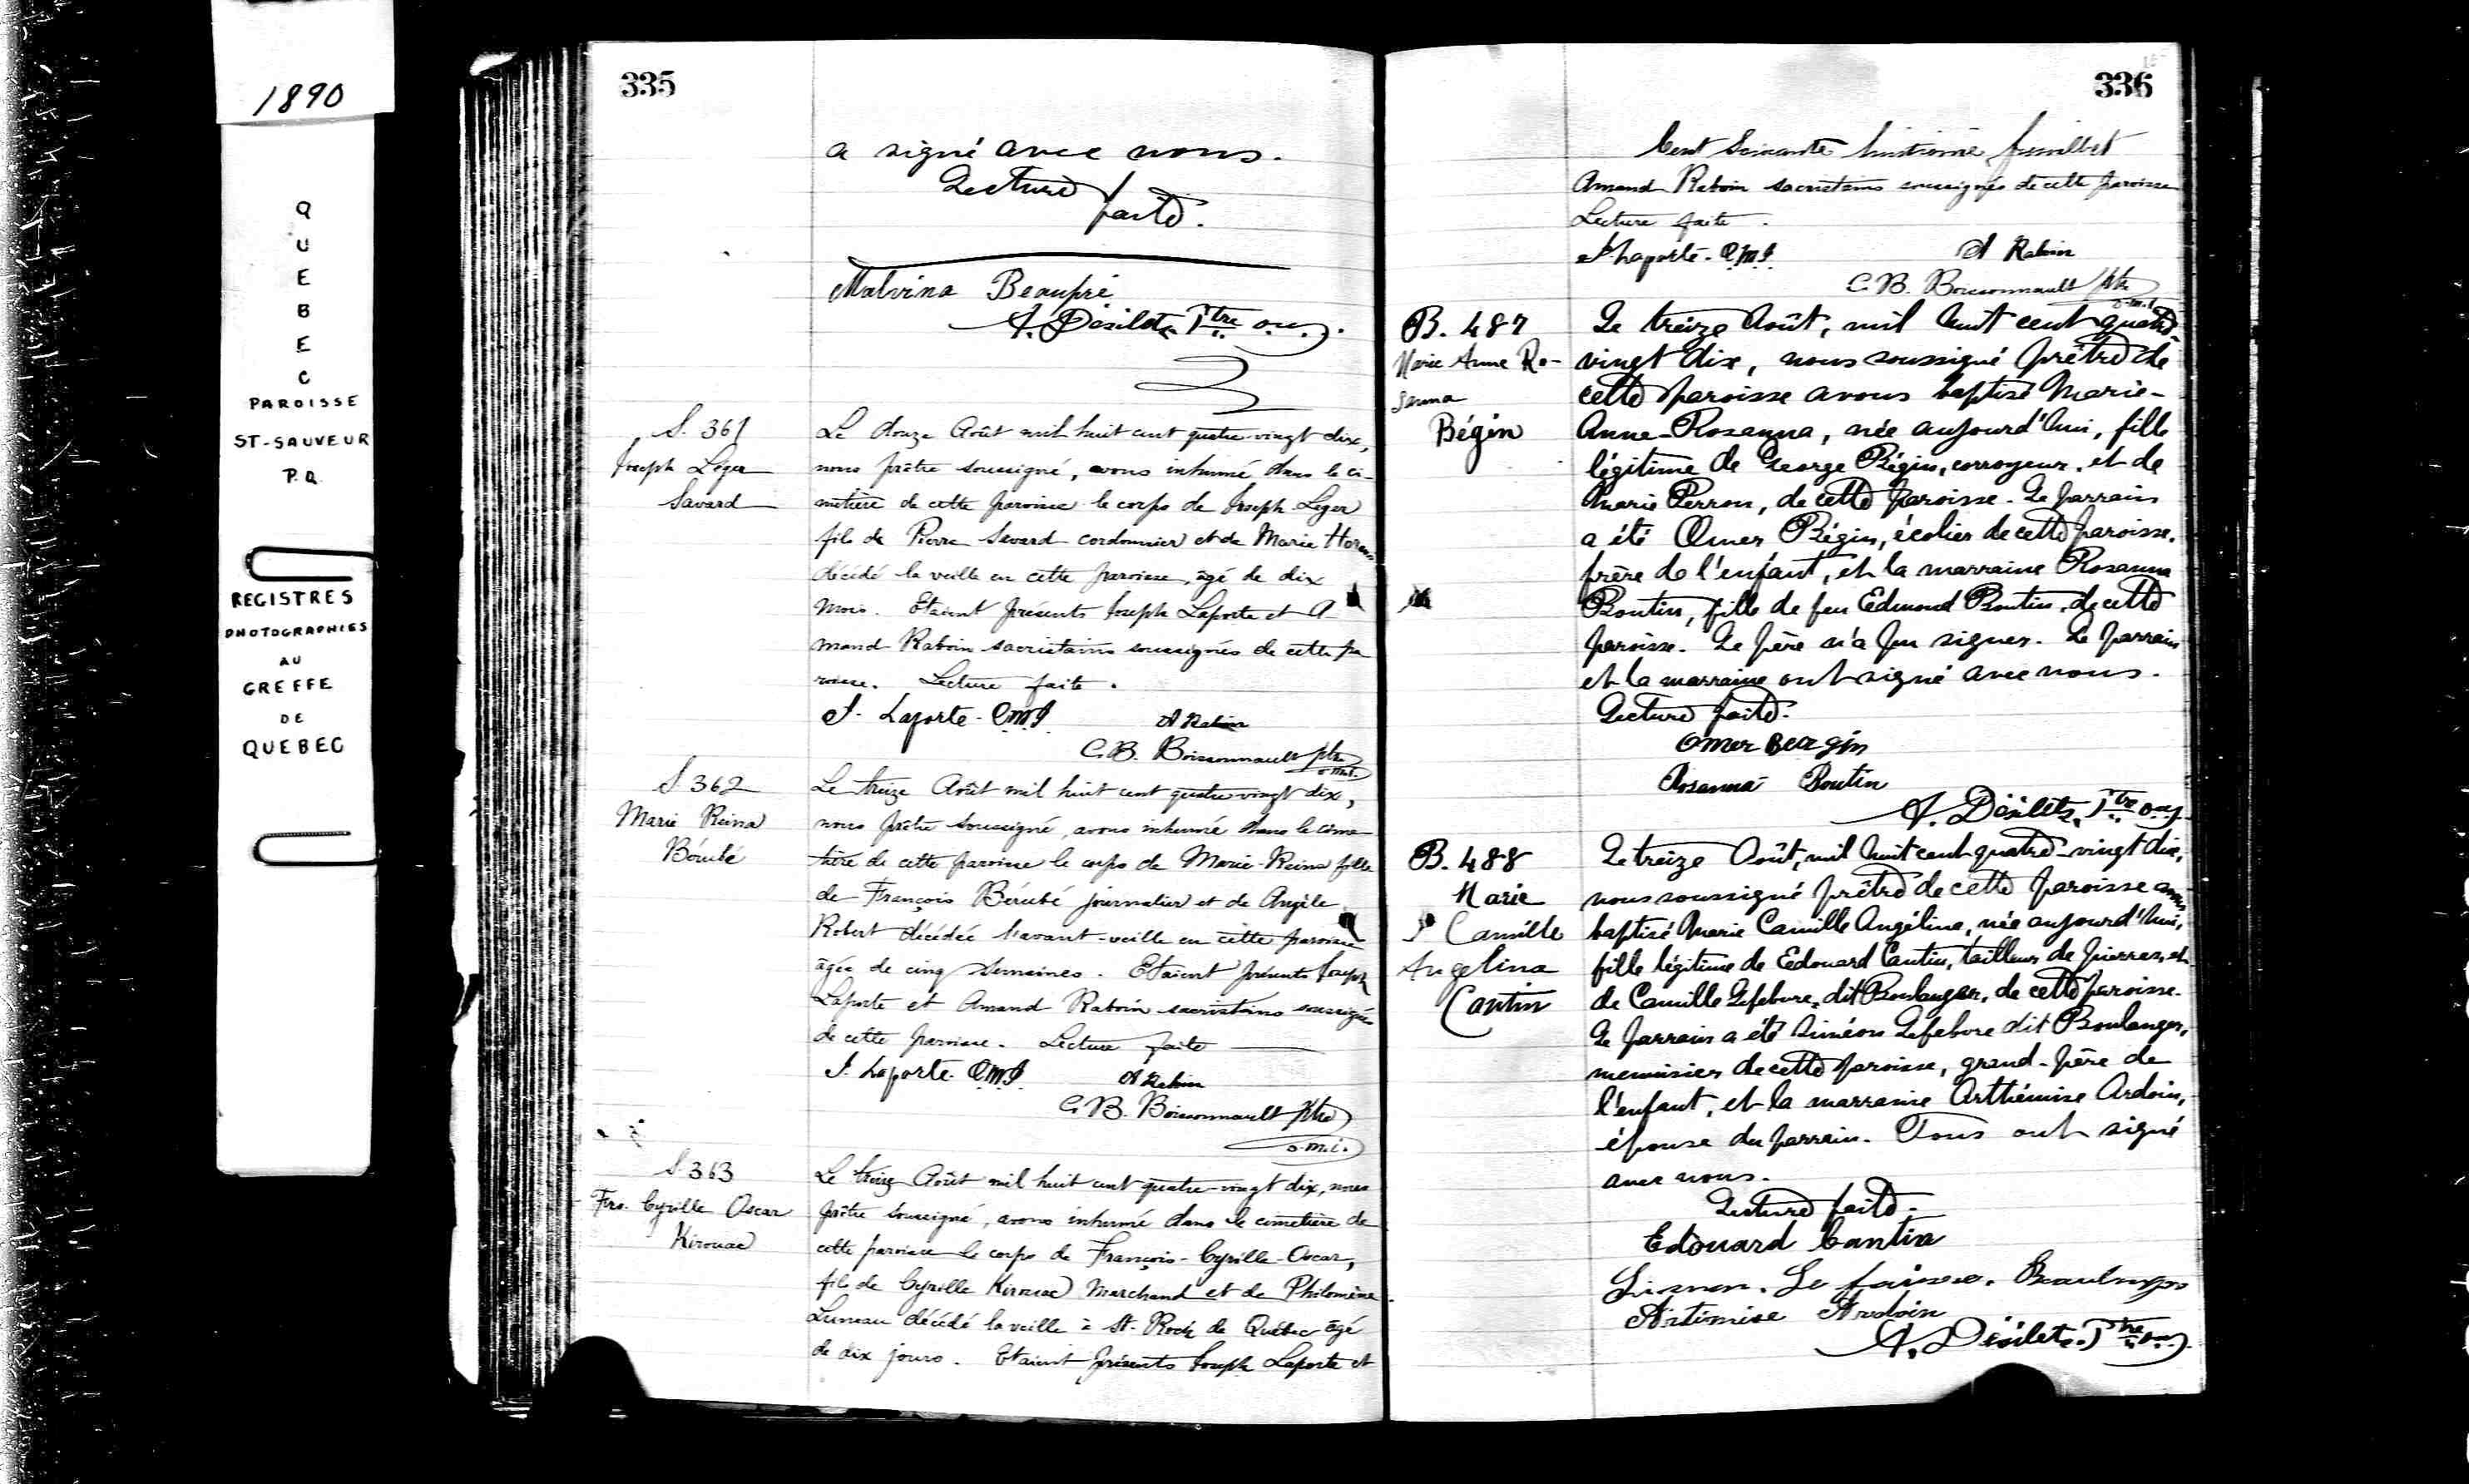 1890
QUEBEC
PAROISSE
ST-SAUVEUR
P.Q.
REGISTRES
PHOTOGRAPHIES
AU
GREFFE
DE
QUEBEC
335
a signé avec nous.
Lecture
faite.
Malvina Beaupré
A. Désilets Ptre o.m.j.
S. 361
Joseph Léger
Savard
Le douze Août mil huit cent quatre-vingt dix,
nous prêtre soussigné, avons inhumé dans le ci-
metière de cette paroisse le corps de Joseph-Léger
fils de Pierre Savard cordonnier et de Marie
décédé la veille en cette paroisse, âgé de dix
mois. Etaient présents Joseph Laporte et A-
mand Raboin sacristains soussignés de cette pa
roisse. Lecture faite.
J. Laporte. O.M.J. A Raboin
C.B. Boissonnault ptre
o.m.i.
S 362
Marie Reina
Bérubé
Le treize Août mil huit cent quatre-vingt dix,
nous prêtre soussigné, avons inhumé dans le cime
tière de cette paroisse le corps de Marie-Reina fille
de François Bérubé journalier et de Angèle
Robert décédée l'avant-veille en cette paroisse
âgée de cinq semaines. Etaient présents Joseph
Laporte et Amand Raboin sacristains soussignés
de cette paroisse. Lecture faite
J. Laporte. O.M.J. A Raboin
C.B. Boissonnault ptre
o.m.i.
S. 363
Frs. Cyrille Oscar
Kirouac
Le treize Août mil huit cent quatre-vingt dix, nous
prêtre soussigné, avons inhumé dans le cimetière de
cette paroisse le corps de François-Cyrille-Oscar,
fils de Cyrille Kirouac Marchand et de Philomène
Luneau décédé la veille à St-Roch de Québec âgé
de dix jours. Etaient présents Joseph Laporte et
336
Cent Soixante huitième feuillet
Amand Raboin sacristains soussignés de cette paroisse
Lecture faite.
J. Laporte. O.M.J. A Raboin
C.B. Boissonnault ptre
o.m.i.
B. 487
Marie Anne Ro-
sanna
Bégin
Le treize Août, mil huit cent quatre-
vingt dix, nous soussigné prêtre de
cette paroisse avons baptisé Marie-
Anne-Rosanna, née aujourd'hui, fille
légitime de George Bégin, corroyeur, et de
Marie Perron, de cette paroisse. Le parrain
a été Omer Bégin, écolier de cette paroisse.
frère de l'enfant, et la marraine Rosanna
Boutin, fille de feu Edmond Boutin, de cette
paroisse. Le père n'a pu signer. Le parrain
et la marraine ont signé avec nous.
Lecture faite.
Omer Beagin
Rosanna Boutin
A. Désilets, Ptre o.m.j.
B. 488
Marie
Camille
Angelina
Cantin
Le treize Août, mil huit cent quatre-vingt dix,
nous soussigné prêtre de cette paroisse avons
baptisé Marie Camille Angélina, née aujourd'hui,
fille légitime de Edouard Cantin, tailleur de pierres, et
de Camille Lefebvre, dit Boulanger, de cette paroisse.
Le parrain a été Siméon Lefebvre dit Boulanger,
menuisier de cette paroisse, grand-père de
l'enfant, et la marraine Arthémise Ardoin,
épouse du parrain. Tous ont signé
avec nous.
Lecture faite.
Edouard Cantin
Artémise Ardoin
A. Désilets Ptre o.m.j.